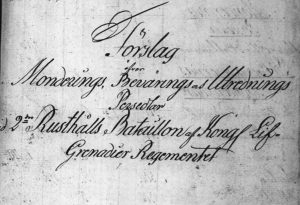 Förslag
öfver
Monderings, Bevärings och Utrednings
Persedlar
2:dra Rusthålls Bataillon af Kongl Lif-
Grenadier Regementet